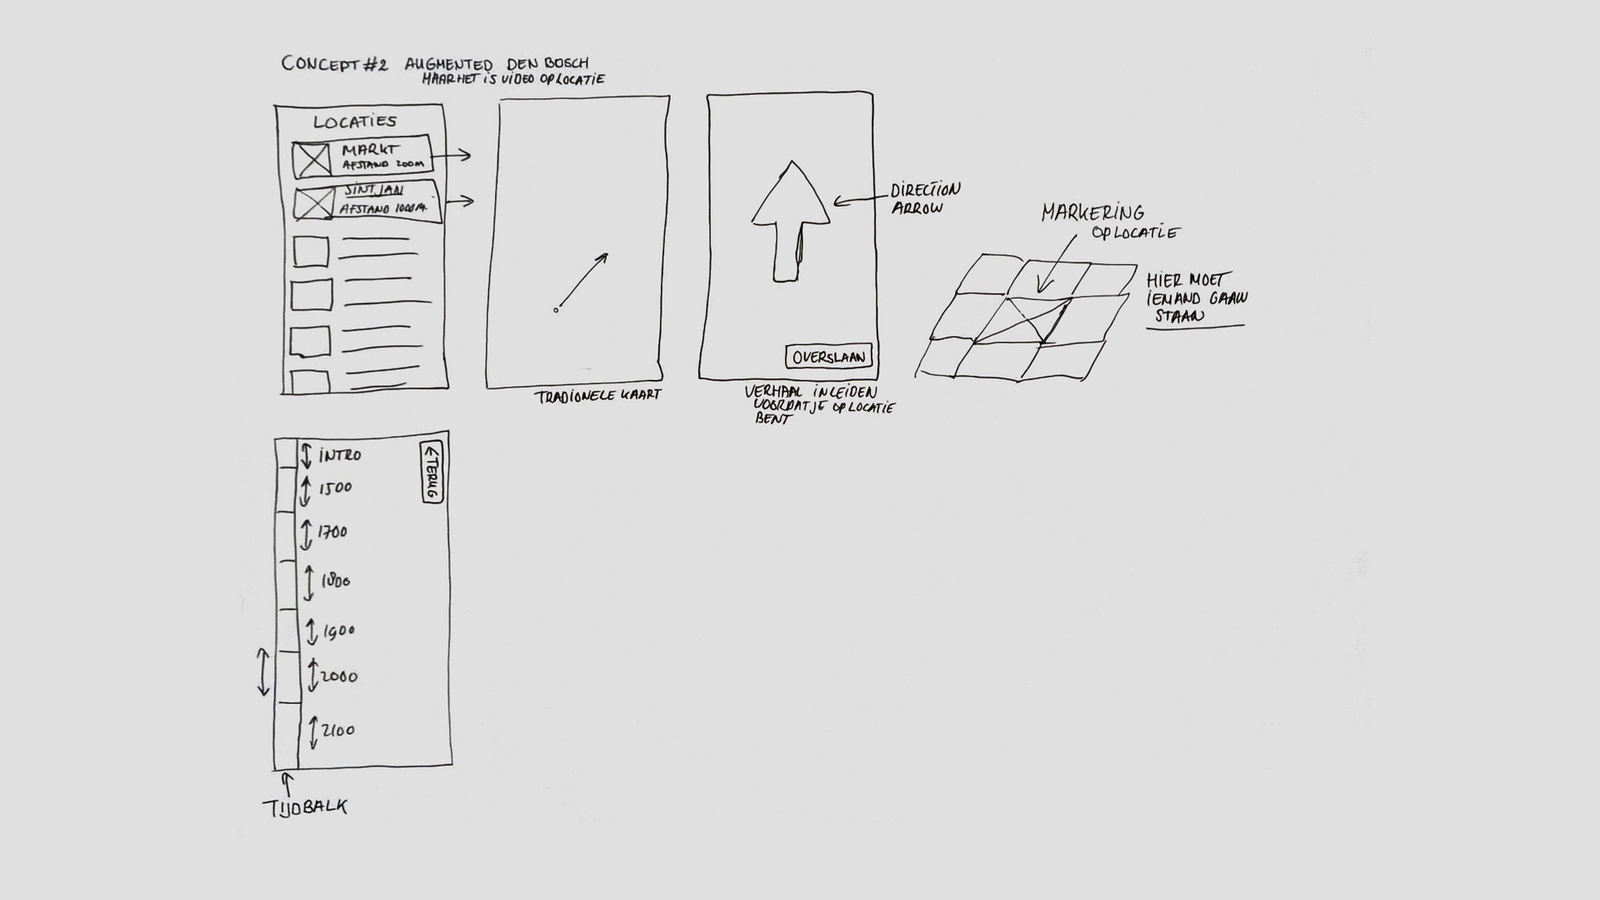 CONCEPT #2 AUGMENTED DEN BOSCH
MAAR HET IS VIDEO OP LOCATIE
LOCATIES
MARKT
AFSTAND 200M
SINT JAN
AFSTAND 1000M.
TRADIONELE KAART
DIRECTION
ARROW
OVERSLAAN
VERHAAL INLEIDEN
VOORDAT JE OP LOCATIE
BENT
MARKERING
OP LOCATIE
HIER MOET
IEMAND GAAN
STAAN
INTRO
1500
1700
1800
1900
2000
2100
← TERUG
TIJDBALK